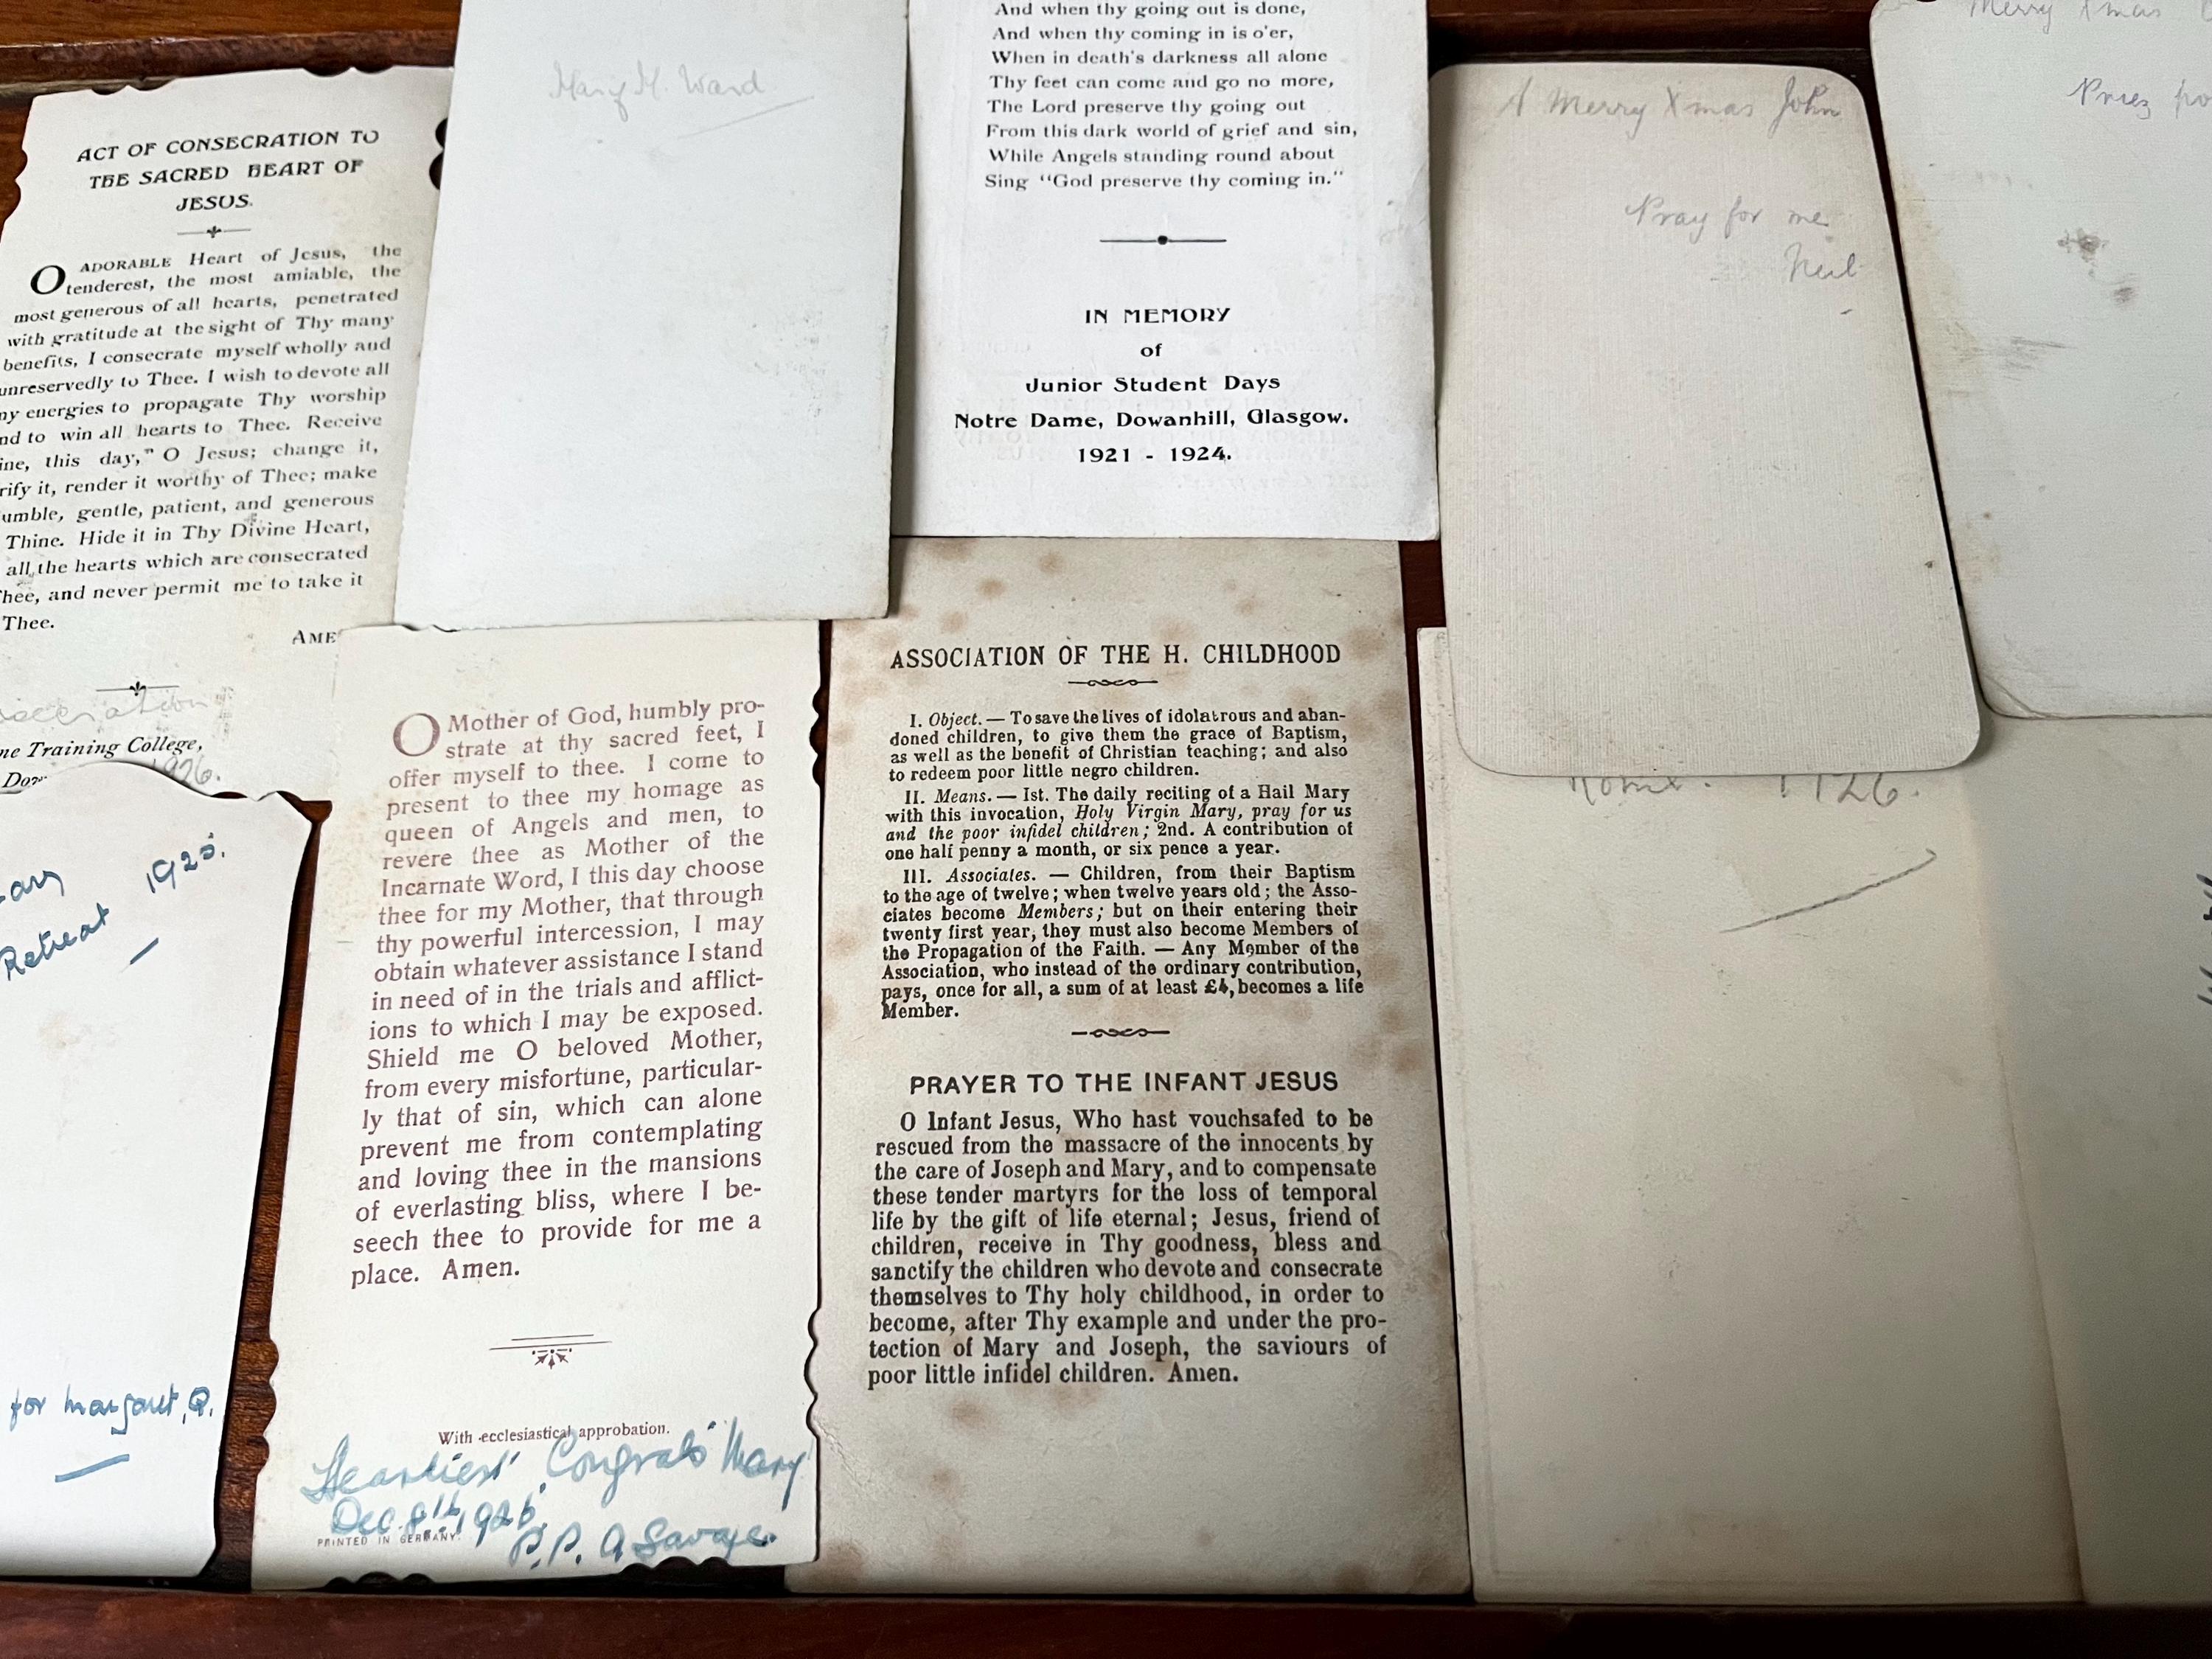 ACT OF CONSECRATION TO
THE SACRED HEART OF
JESUS.
O ADORABLE Heart of Jesus, the
tenderest, the most amiable, the
most generous of all hearts, penetrated
with gratitude at the sight of Thy many
benefits, I consecrate myself wholly and
unreservedly to Thee. I wish to devote all
my energies to propagate Thy worship
nd to win all hearts to Thee. Receive
ine, this day," O Jesus; change it,
rify it, render it worthy of Thee; make
umble, gentle, patient, and generous
Thine. Hide it in Thy Divine Heart,
all the hearts which are consecrated
hee, and never permit me to take it
Thee.
AME
me Training College,
1926.
Mary M. Ward
And when thy going out is done,
And when thy coming in is o'er,
When in death's darkness all alone
Thy feet can come and go no more,
The Lord preserve thy going out
From this dark world of grief and sin,
While Angels standing round about
Sing "God preserve thy coming in."
IN MEMORY
of
Junior Student Days
Notre Dame, Dowanhill, Glasgow.
1921 - 1924.
A Merry Xmas John
Pray for me
Neil
Merry Xmas
Priez po
Retreat 1925.
for Margaret, Q.
O Mother of God, humbly pro-
strate at thy sacred feet, I
offer myself to thee. I come to
present to thee my homage as
queen of Angels and men, to
revere thee as Mother of the
Incarnate Word, I this day choose
thee for my Mother, that through
thy powerful intercession, I may
obtain whatever assistance I stand
in need of in the trials and afflict-
ions to which I may be exposed.
Shield me O beloved Mother,
from every misfortune, particular-
ly that of sin, which can alone
prevent me from contemplating
and loving thee in the mansions
of everlasting bliss, where I be-
seech thee to provide for me a
place. Amen.
With ecclesiastical approbation.
Heartiest Congrats Mary
Dec. 8th 1926.
PRINTED IN GERMANY.
P.P. A Savage.
ASSOCIATION OF THE H. CHILDHOOD
I. Object. — To save the lives of idolatrous and aban-
doned children, to give them the grace of Baptism,
as well as the benefit of Christian teaching; and also
to redeem poor little negro children.
II. Means. — Ist. The daily reciting of a Hail Mary
with this invocation, Holy Virgin Mary, pray for us
and the poor infidel children; 2nd. A contribution of
one half penny a month, or six pence a year.
III. Associates. — Children, from their Baptism
to the age of twelve; when twelve years old; the Asso-
ciates become Members; but on their entering their
twenty first year, they must also become Members of
the Propagation of the Faith. — Any Member of the
Association, who instead of the ordinary contribution,
pays, once for all, a sum of at least £4, becomes a life
Member.
PRAYER TO THE INFANT JESUS
O Infant Jesus, Who hast vouchsafed to be
rescued from the massacre of the innocents by
the care of Joseph and Mary, and to compensate
these tender martyrs for the loss of temporal
life by the gift of life eternal; Jesus, friend of
children, receive in Thy goodness, bless and
sanctify the children who devote and consecrate
themselves to Thy holy childhood, in order to
become, after Thy example and under the pro-
tection of Mary and Joseph, the saviours of
poor little infidel children. Amen.
Rome. 1926.